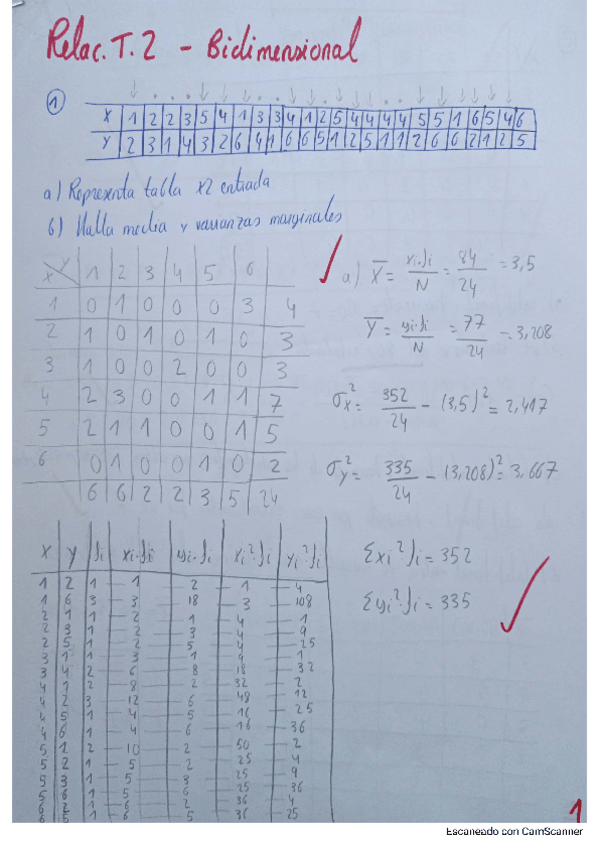 Relac. T. 2 - Bidimensional
1
X 1 2 2 3 5 4 1 3 3 4 1 2 5 4 4 4 4 5 5 1 6 5 4 6
Y 2 3 1 4 3 2 6 4 1 6 6 5 1 2 5 1 1 2 6 6 2 1 2 5
a) Representa tabla x2 entrada
b) Halla media y varianzas marginales
X Y 1 2 3 4 5 6
1 0 1 0 0 0 3 4
2 1 0 1 0 1 0 3
3 1 0 0 2 0 0 3
4 2 3 0 0 1 1 7
5 2 1 1 0 0 1 5
6 0 1 0 0 1 0 2
6 6 2 2 3 5 24
a) X̅ = xi·fi / N = 84 / 24 = 3,5
Y̅ = yi·fi / N = 77 / 24 = 3,208
σx² = 352 / 24 - (3,5)² = 2,417
σy² = 335 / 24 - (3,208)² = 3,667
X Y fi xi·fi yi·fi xi²·fi yi²·fi
1 2 1 1 2 1 4
1 6 3 3 18 3 108
2 1 1 2 1 4 1
2 3 1 2 3 4 9
2 5 1 2 5 4 25
3 1 1 3 1 9 1
3 4 2 6 8 18 32
4 1 2 8 2 32 2
4 2 3 12 6 48 12
4 5 1 4 5 16 25
4 6 1 4 6 16 36
5 1 2 10 2 50 2
5 2 1 5 2 25 4
5 3 1 5 3 25 9
5 6 1 5 6 25 36
6 2 1 6 2 36 4
6 5 1 6 5 36 25
Σxi²·fi = 352
Σyi²·fi = 335
1
Escaneado con CamScanner